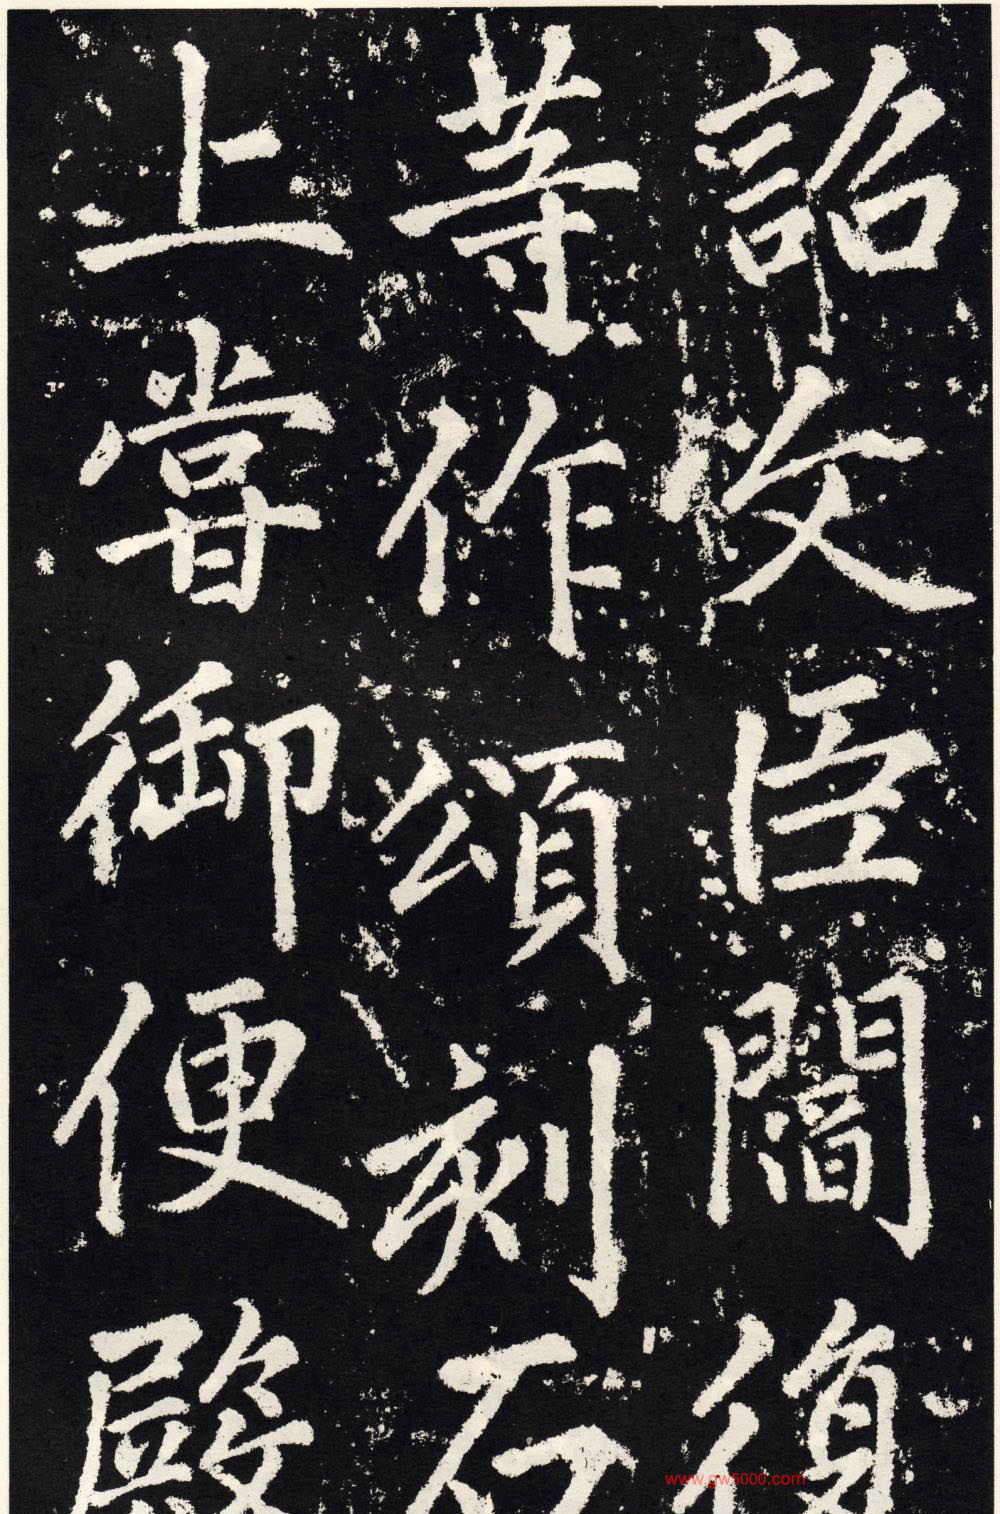 詔文臣閻復
等作頌刻石
上嘗御便殿
www.gw5000.com